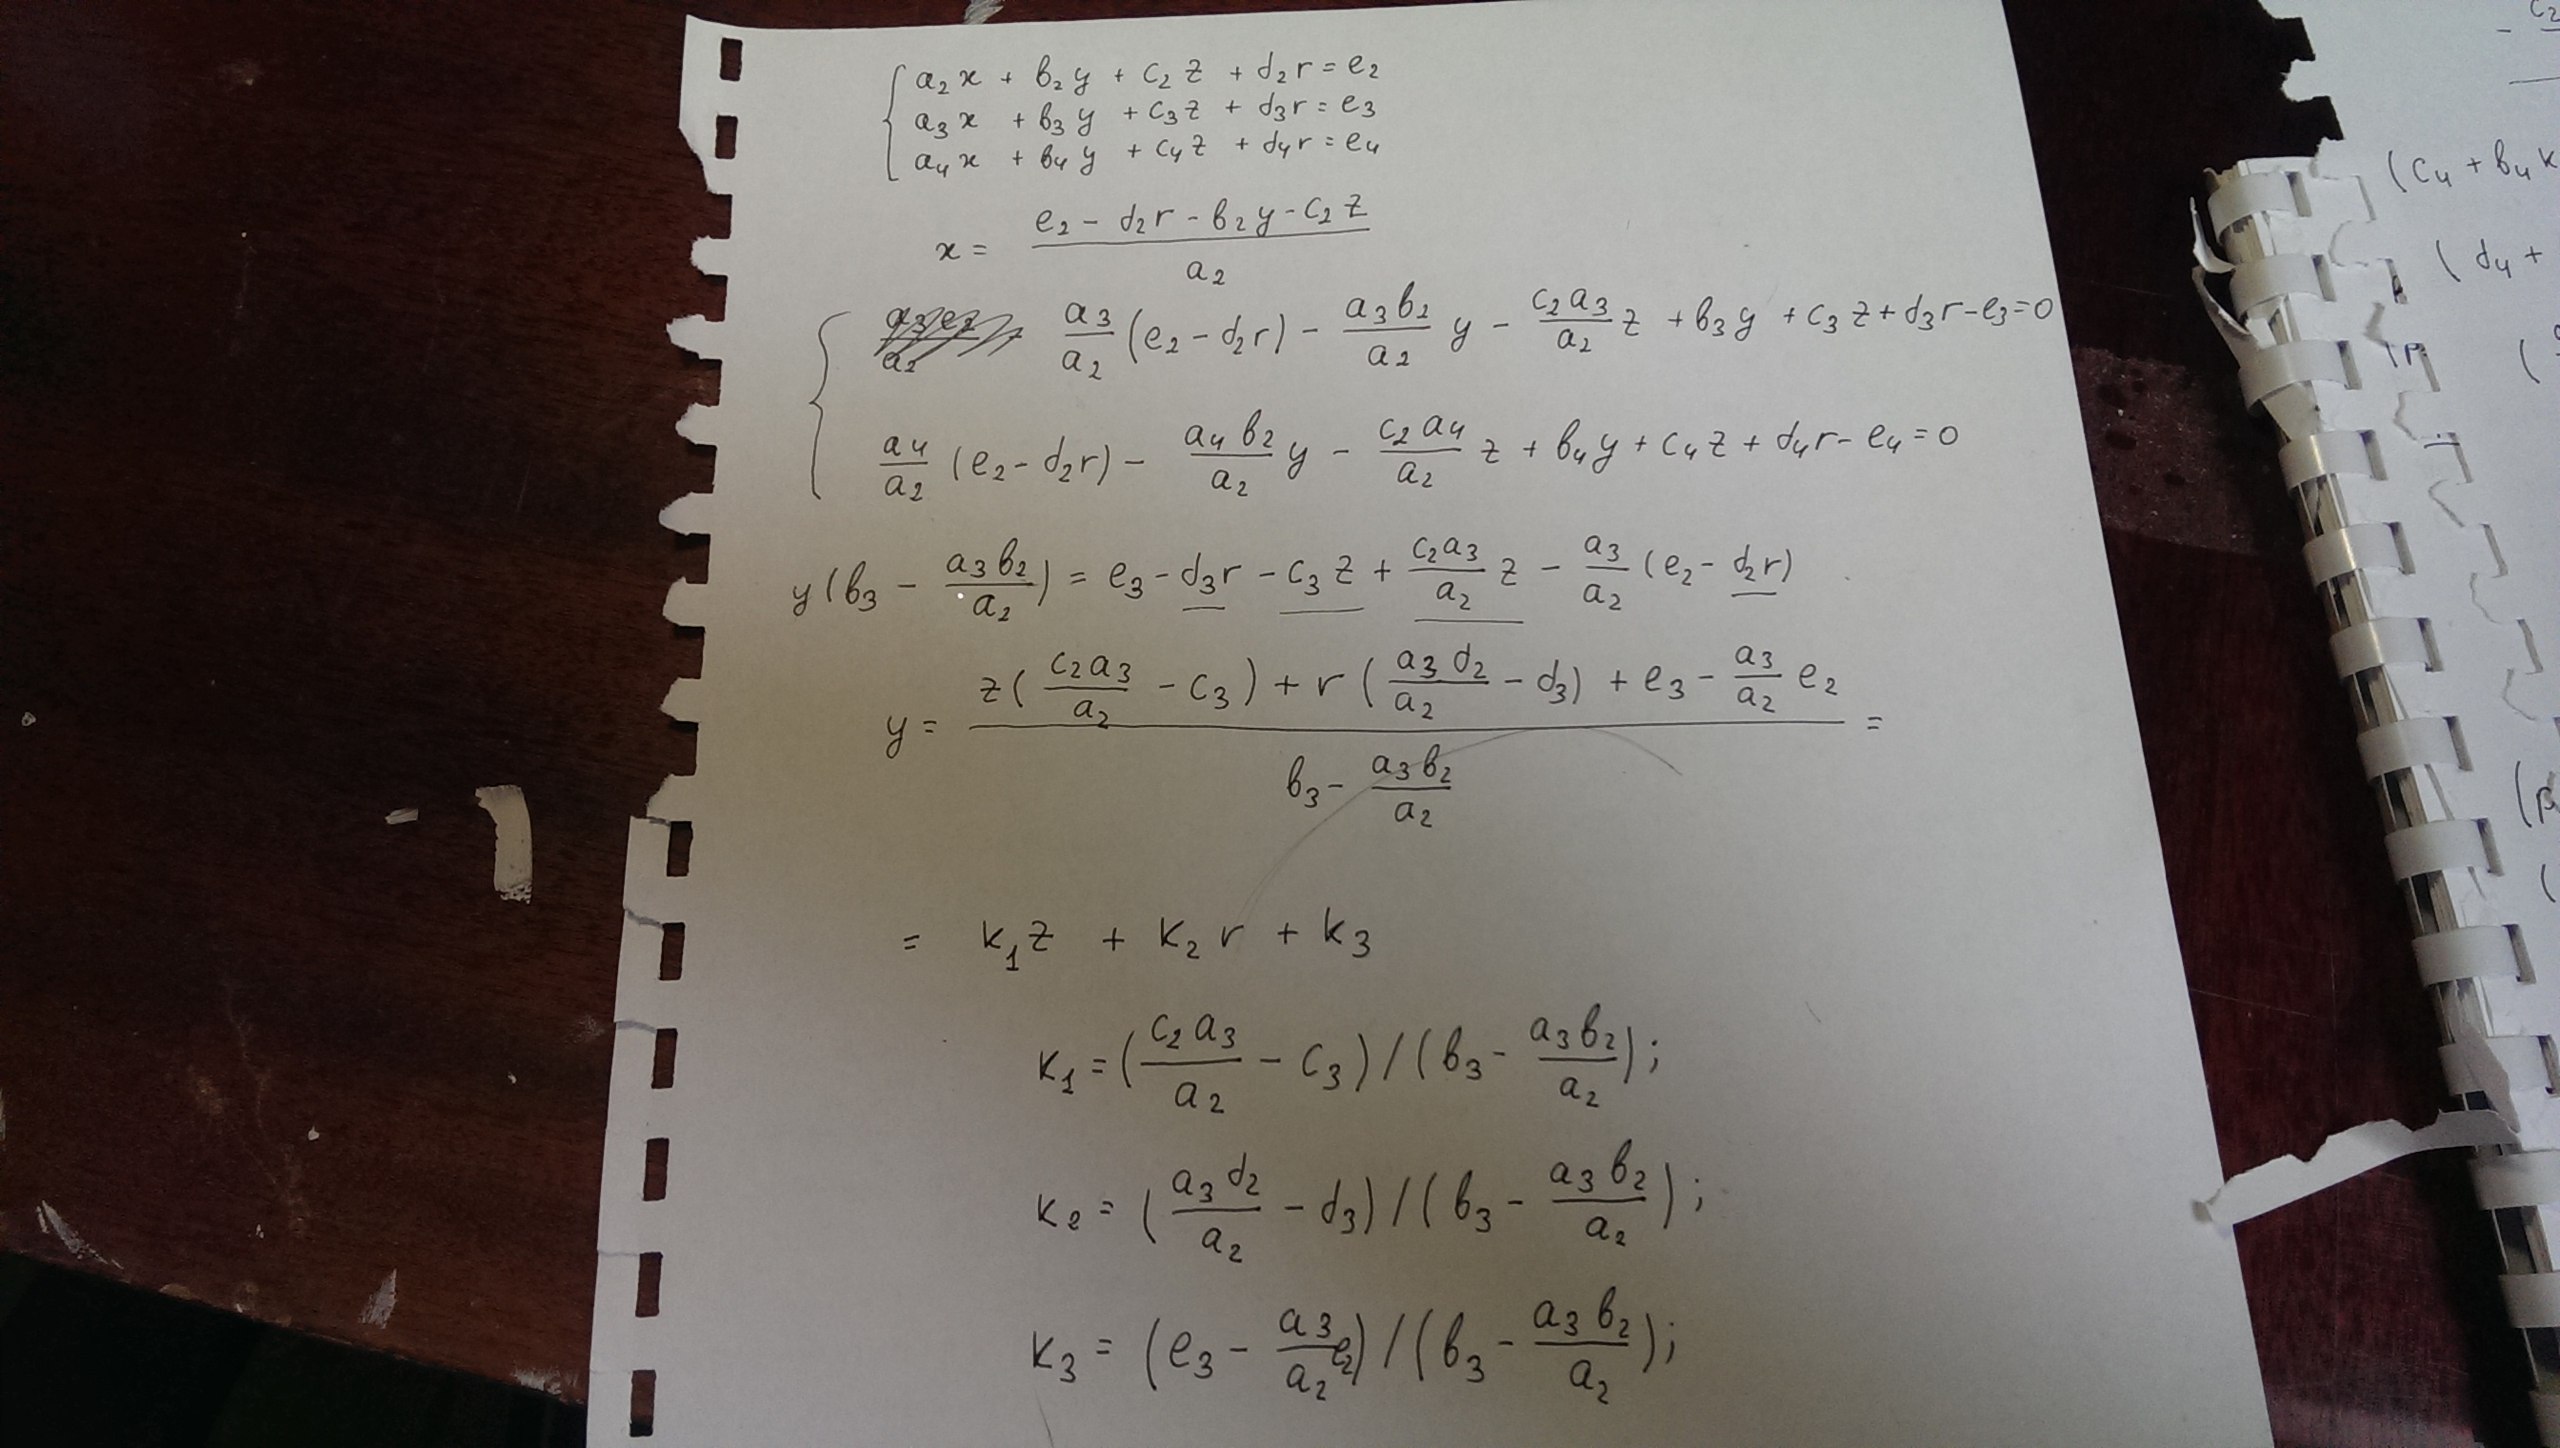 a₂x + b₂y + c₂z + d₂r = e₂
a₃x + b₃y + c₃z + d₃r = e₃
a₄x + b₄y + c₄z + d₄r = e₄
x = (e₂ - d₂r - b₂y - c₂z) / a₂
a₃/a₂ (e₂ - d₂r) - a₃b₂/a₂ y - c₂a₃/a₂ z + b₃y + c₃z + d₃r - e₃ = 0
a₄/a₂ (e₂ - d₂r) - a₄b₂/a₂ y - c₂a₄/a₂ z + b₄y + c₄z + d₄r - e₄ = 0
y(b₃ - a₃b₂/a₂) = e₃ - d₃r - c₃z + c₂a₃/a₂ z - a₃/a₂ (e₂ - d₂r)
y = (z(c₂a₃/a₂ - c₃) + r(a₃d₂/a₂ - d₃) + e₃ - a₃/a₂ e₂) / (b₃ - a₃b₂/a₂) =
= k₁z + k₂r + k₃
k₁ = (c₂a₃/a₂ - c₃) / (b₃ - a₃b₂/a₂);
k₂ = (a₃d₂/a₂ - d₃) / (b₃ - a₃b₂/a₂);
k₃ = (e₃ - a₃/a₂ e₂) / (b₃ - a₃b₂/a₂);
(c₄ + b₄k
(d₄ +